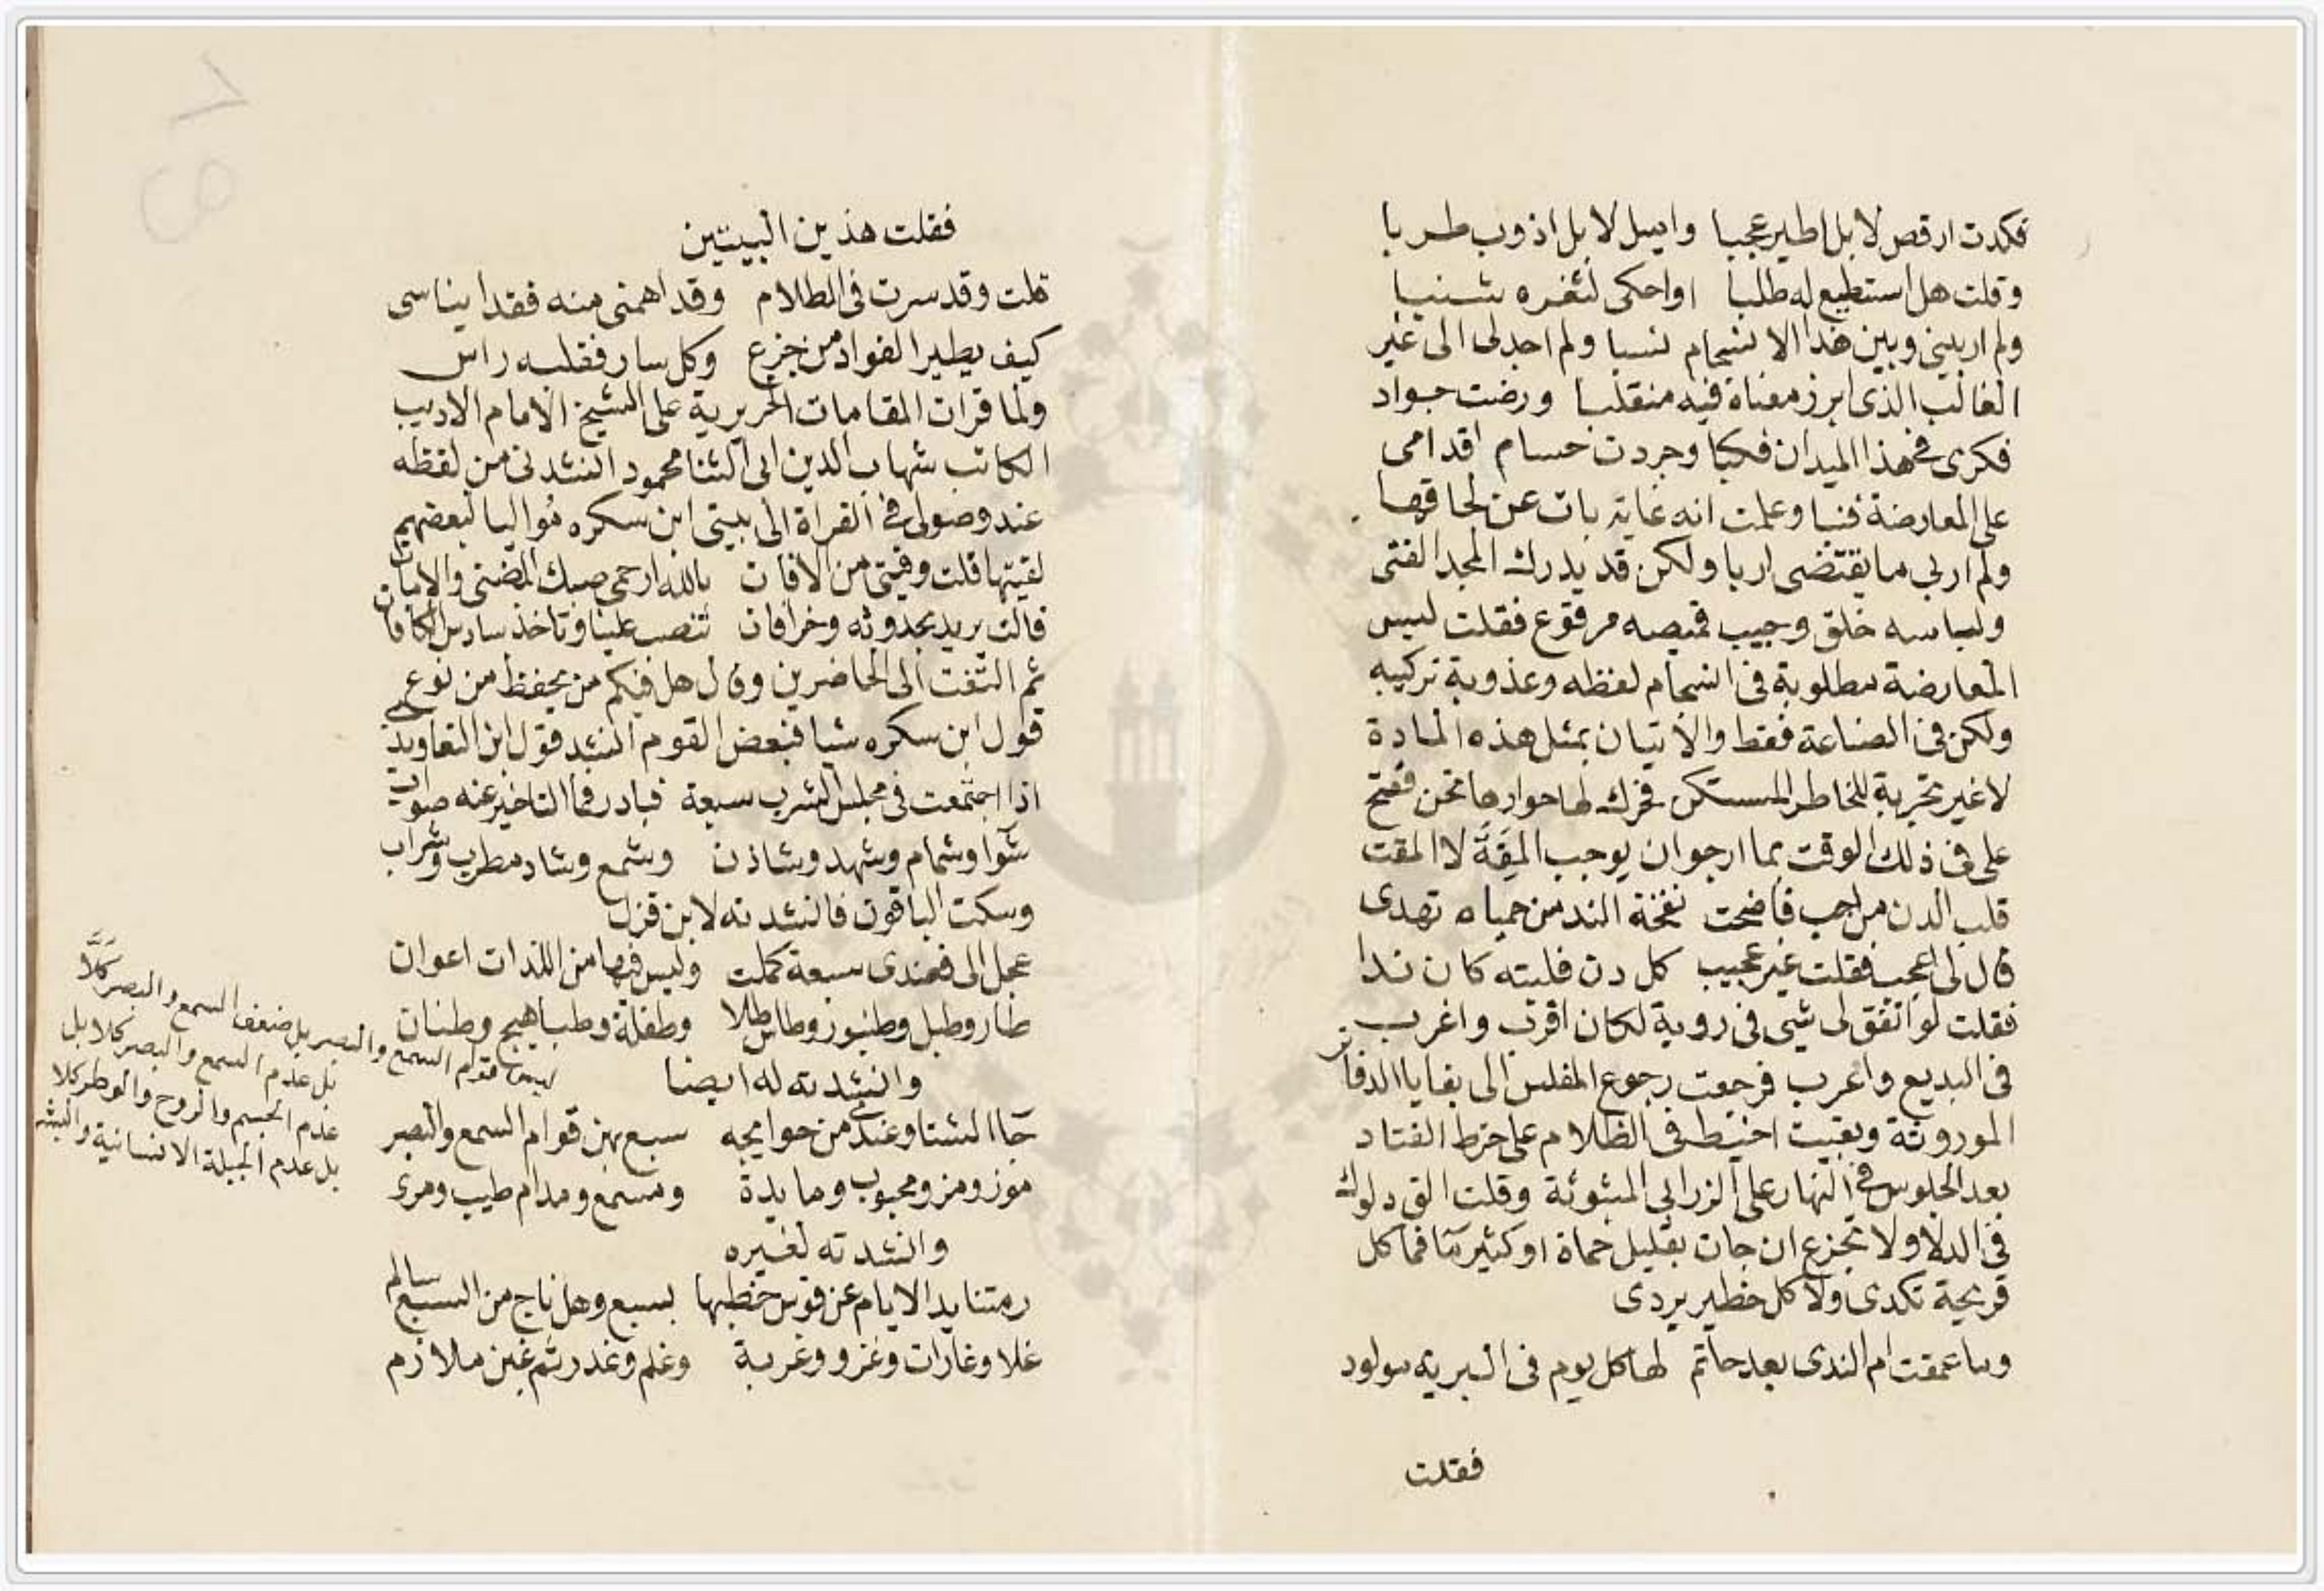 فكدت ارقص لا بل اطير عجبا واميل لا بل اذوب طربا
وقلت هل استطيع له طلبا او احكى لثغره شنبا
ولم ار بيني وبين هذا الانسجام نسبا ولم اجد لى الى غير
القالب الذى ابرز معناه فيه منقلبا ورضت جواد
فكرى فى هذا الميدان فكبا وجردت حسام اقدامى
على المعارضة فنبا وعلمت انه غاية بات عن لحاقها
ولم ار لى ما يقتضى اربا ولكن قد يدرك المجد الفتى
ولباسه خلق وجيب قميصه مرقوع فقلت ليس
المعارضة مطلوبة فى انسجام لفظه وعذوبة تركيبه
ولكن فى الصناعة فقط والاتيان بمثل هذه المادة
لا غير تجربة للخاطر المستكن فحرك لها حوارها تحن ففتح
على فى ذلك الوقت بما ارجو ان يوجب المِقَة لا المقت
قلب الدن من احب فاضحت نفخة الند من حمياه تهدى
قال لى اعجب فقلت غير عجيب كل دن قلبته كان ندا
فقلت لو اتفق لى شى فى روية لكان اقرب واغرب
فى البديع واعرب فرجعت رجوع المفلس الى بقايا الدفاتر
الموروثة وبقيت اخبط فى الظلام على خرط القتاد
بعد الجلوس فى النهار على الزرابى المبثوثة وقلت الق دلوك
فى الدلا ولا تجزع ان جات بقليل حماة او كثير ما فما كل
قريحة تكدى ولا كل خطير يردى
وما عقمت ام الندى بعد حاتم لها كل يوم فى البرية مولود
فقلت
فقلت هذين البيتين
قلت وقد سرت فى الظلام وقد اهمنى منه فقد ايناسى
كيف يطير الفواد من جزع وكل سار فقلبه راس
ولما قرات المقامات الحريرية على الشيخ الامام الاديب
الكاتب شهاب الدين ابى الثنا محمود انشدنى من لفظه
عند وصولى فى القراة الى بيتى ابن سكره مواليا لبعضهم
لقيتها قلت وقيتى من الافات بالله ارحمى صبك المضنى والامات
قالت يريد بحدوثه وخرافات تنصب علينا وتاخذ سادس الكافات
ثم التفت الى الحاضرين وقال هل فيكم من يحفظ من نوع
قول ابن سكره شيا فبعض القوم انشد قول ابن التعاويذى
اذا اجتمعت فى مجلس الشرب سبعة فبادر فما التاخير عنه صواب
شوا وشمام وشهد وشاذن وشمع وشاد مطرب وشراب
وسكت الباقون فانشدته لابن قزل
عجل الى فعندى سبعة كملت وليس فيها من اللذات اعوان
طار وطبل وطنبور وطاس طلا وطفلة وطباهيج وطنان
وانشدته له ايضا
جا الشتا وعندى من حوايجه سبع بهن قوام السمع والبصر
موز ومز ومحبوب ومايدة ومسمع ومدام طيب ومرى
وانشدته لغيره
رمتنا يد الايام عن قوس خطبها بسبع وهل ناج من السبع سالم
غلا وغارات وغزو وغربة وغم وغدر ثم غبن ملازم
ليس قوام السمع والبصر بل ضعف السمع والبصر كلا
بل عدم السمع والبصر كلا بل
عدم الجسم والروح والوطر كلا
بل عدم الجبلة الانسانية والبشر